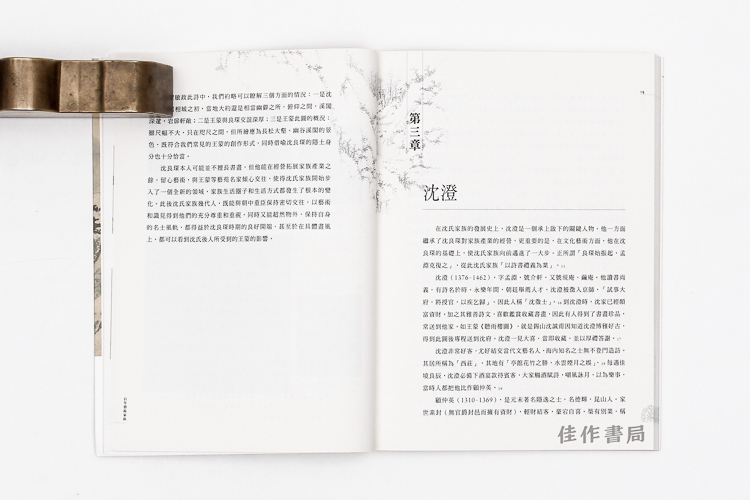 敏啟此詩中，我們約略可以瞭解三個方面的情況：一是沈
相城之初，當地大約還是相當幽僻之所，俯仰之間，溪闊
深蘿，岩扉軒敞；二是王蒙與良琛交誼深厚；三是王蒙此圖的概況：
雖尺幅不大，只在咫尺之間，但所繪應為長松大壑、幽谷溪閣的景
色，既符合我們常見的王蒙的創作形式，同時借喻沈良琛的隱士身
分也十分恰當。
沈良琛本人可能並不擅長書畫，但他能在經營拓展家族產業之
餘，留心藝術，與王蒙等藝苑名家傾心交往，使得沈氏家族開始步
入了一個全新的領域，家族生活圈子和生活方式都發生了根本的變
化。此後沈氏家族幾代人，既能與朝中重臣保持密切交往，以藝術
和識見得到他們的充分尊重和重視，同時又能超然物外，保持自身
的名士風軌，都得益於沈良琛時期的良好開端。甚至於在具體畫風
上，都可以看到沈氏後人所受到的王蒙的影響。
第三章
沈澄
在沈氏家族的發展史上，沈澄是一個承上啟下的關鍵人物。他一方面
繼承了沈良琛對家族產業的經營，更重要的是，在文化藝術方面，他在沈
良琛的基礎上，使沈氏家族向前邁進了一大步。正所謂「良琛始振起，孟
淵克復之」，從此沈氏家族「以詩書禮義為業」。
沈澄（1376-1462），字孟淵，號介軒，又號規庵、繭庵。他讀書尚
義，有詩名於時。永樂年間，朝廷舉薦人才，沈澄被徵入京師，「試事大
府，將授官，以疾乞歸」，因此人稱「沈徵士」。到沈澄時，沈家已經頗
富資財，加之其雅善詩文，喜歡鑑賞收藏書畫，因此有人得到了書畫珍品，
常送到他家，如王蒙《聽雨樓圖》，就是錫山沈誠甫因知道沈澄博雅好古，
得到此圖後專程送到沈府，沈澄一見大喜，當即收藏，並以厚禮答謝。
沈澄非常好客，尤好結交當代文藝名人，海內知名之士無不登門造訪。
其居所稱為「西莊」，其地有「亭館花竹之勝，水雲煙月之娛」，每遇佳
境良辰，沈澄必備下酒宴款待賓客，大家觴酒賦詩，嘲風詠月，以為樂事，
當時人都把他比作顧仲英。
顧仲英（1310-1369），是元末著名隱逸之士，名德輝，崑山人，家
世素封（無官爵封邑而擁有資財），輕財結客，豪宕自喜，築有別業，稱
佳作書局